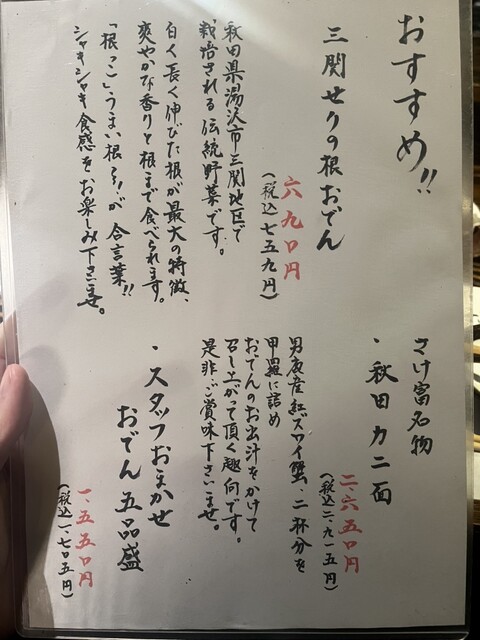 おすすめ!!
三関せりの根おでん
六九〇円
(税込七五九円)
秋田県湯沢市三関地区で
栽培される伝統野菜です。
白く長く伸びた根が最大の特徴、
爽やかな香りと根まで食べられます。
「根っこ」うまい根〜!が合言葉!!
シャキシャキ食感をお楽しみ下さいませ。
さけ富名物
・秋田カニ面
二、六五〇円
(税込二、九一五円)
男鹿産紅ズワイ蟹、二杯分を
甲羅に詰め
おでんのお出汁をかけて
召し上がって頂く趣向です。
是非ご賞味下さいませ。
・スタッフおまかせ
おでん五品盛
一、五五〇円
(税込一、七〇五円)